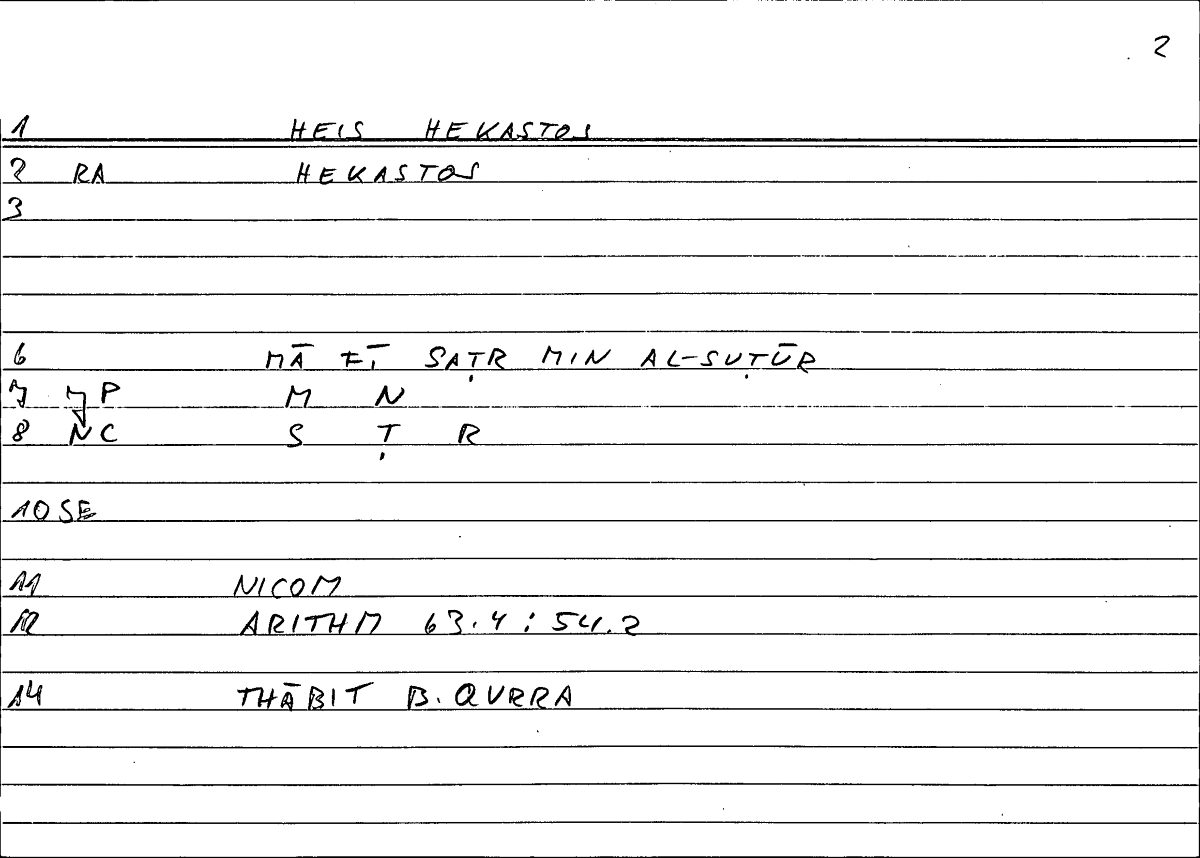 2
1 HEIS HEKASTOS
2 RA HEKASTOS
3
6 MĀ FĪ SAṬR MIN AL-SUṬŪR
7 P M N
8 NC S Ṭ R
10 SE
11 NICOM
12 ARITHM 63.4 : 54.2
14 THĀBIT B. QURRA